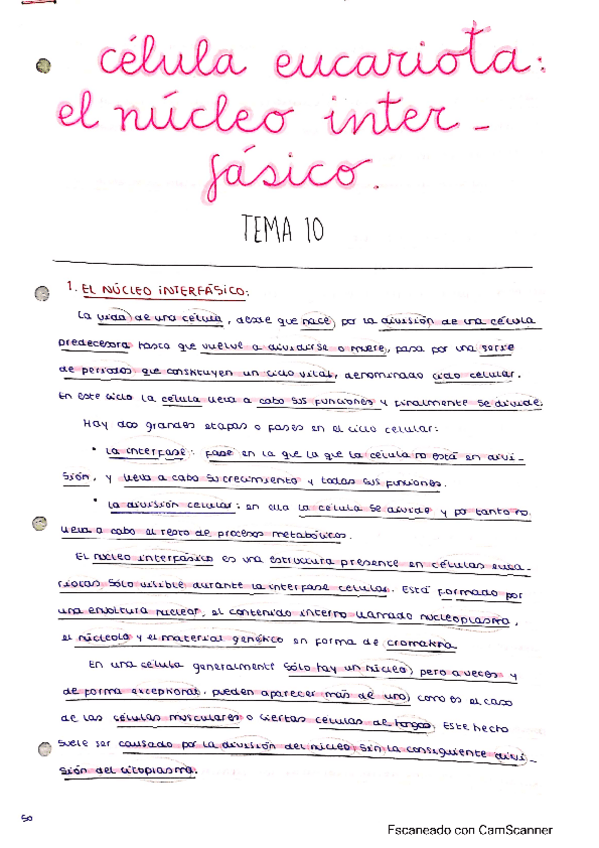 célula eucariota:
el núcleo inter-
fásico.
TEMA 10
1. EL NÚCLEO INTERFÁSICO:
La vida de una célula, desde que nace por la división de una célula
predecesora hasta que vuelve a dividirse o muere, pasa por una serie
de periodos que constituyen un ciclo vital, denominado ciclo celular.
En este ciclo la célula lleva a cabo sus funciones y finalmente se divide.
Hay dos grandes etapas o fases en el ciclo celular:
• La interfase: fase en la que la que la célula no está en divi-
sión, y lleva a cabo su crecimiento y todas sus funciones.
• La división celular: en ella la célula se divide y por tanto no
lleva a cabo el resto de procesos metabólicos.
El núcleo interfásico es una estructura presente en células euca-
riotas, sólo visible durante la interfase celular. Está formado por
una envoltura nuclear, el contenido interno llamado nucleoplasma,
el núcleolo y el material genético en forma de cromatina.
En una célula generalmente sólo hay un núcleo, pero a veces y
de forma excepcional, pueden aparecer más de uno, como es el caso
de las células musculares o ciertas células de hongos. Este hecho
suele ser causado por la división del núcleo, sin la consiguiente divi-
sión del citoplasma.
50
Escaneado con CamScanner